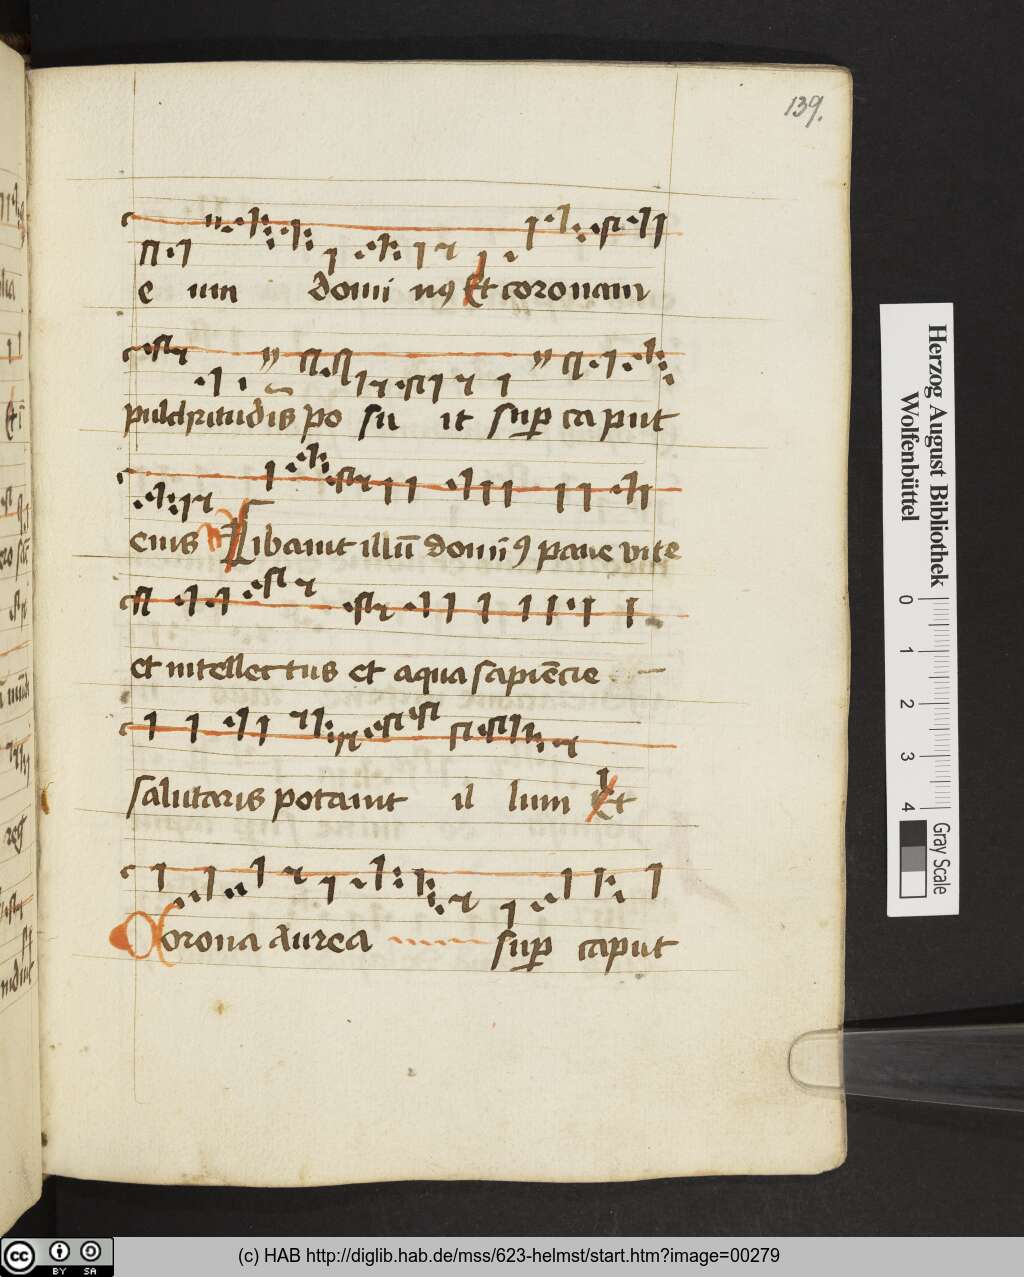 139.
e um domi nꝰ Et coronam
pulchritudis po su it suꝑ ca put
eius Cibauit illū domīꝰ pane vite
et intellectus et aqua sapiēcie
salutaris potauit il lum Et
Corona aurea suꝑ caput
Herzog August Bibliothek
Wolfenbüttel
0 1 2 3 4
Gray Scale
cc BY SA
(c) HAB http://diglib.hab.de/mss/623-helmst/start.htm?image=00279